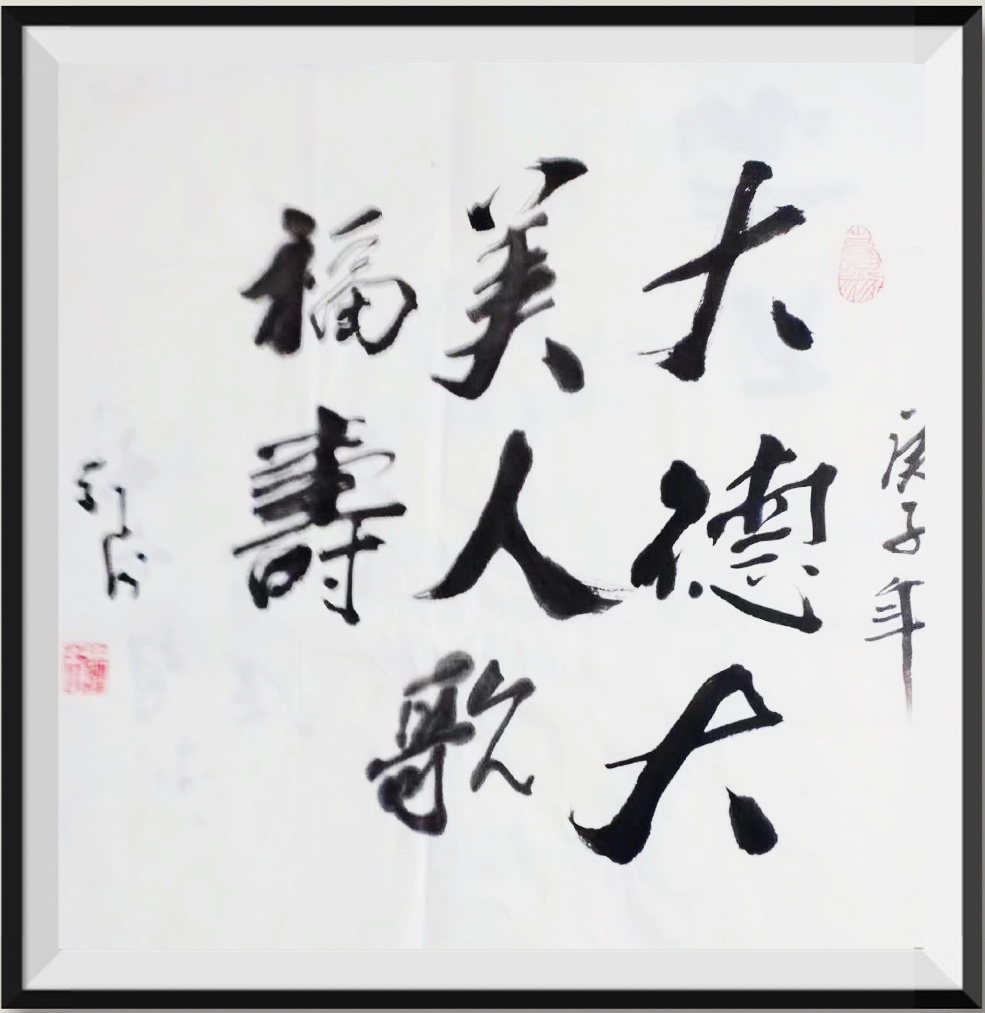 庚子年
大德大
美人歌
福壽